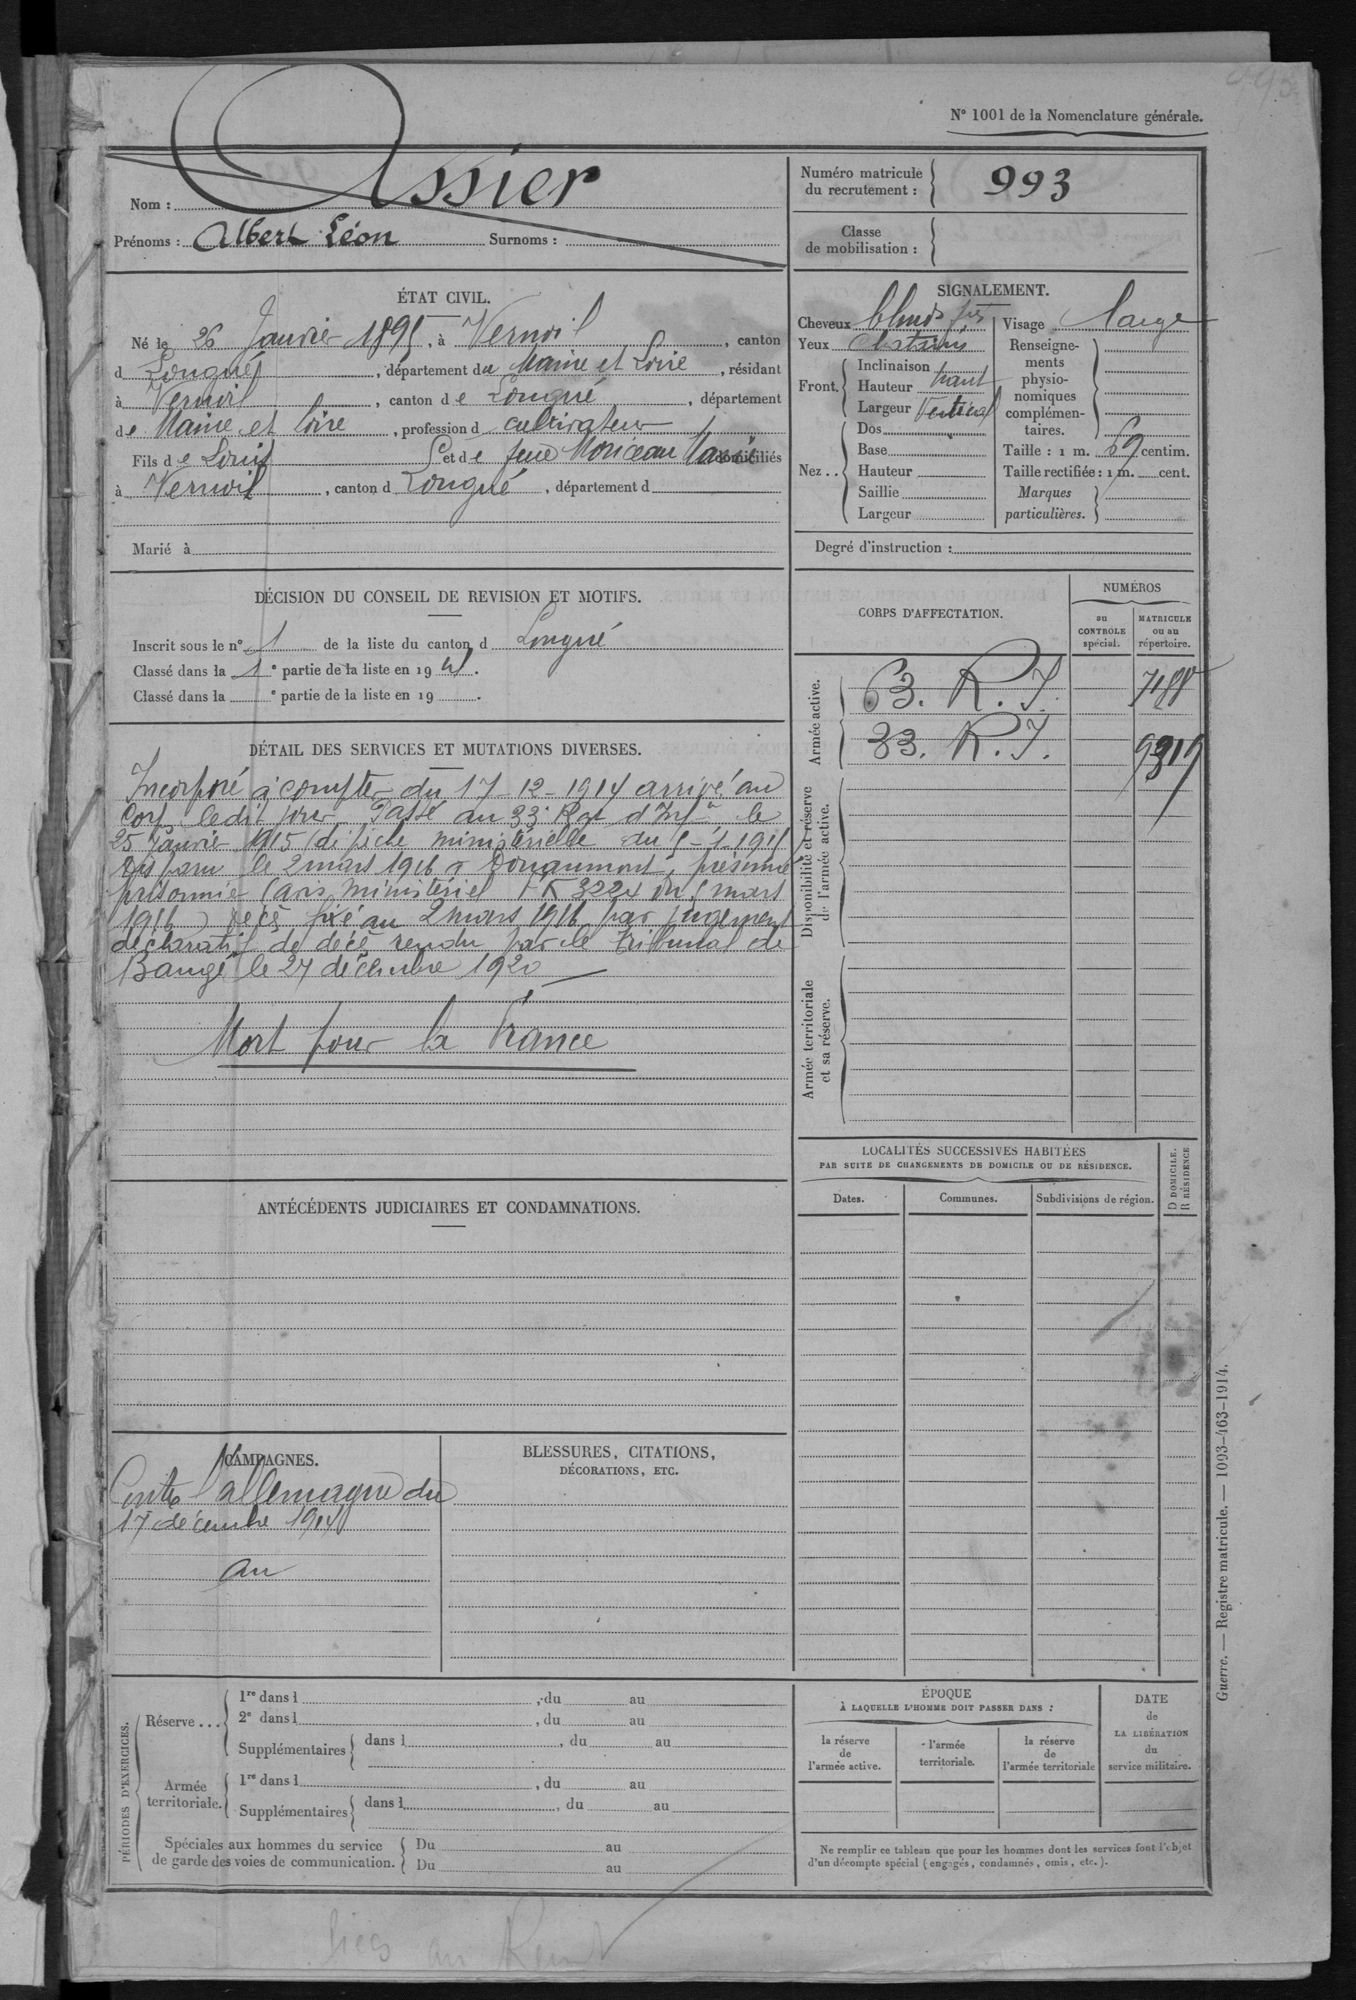 N° 1001 de la Nomenclature générale.
Nom : Assier
Prénoms : Albert Léon Surnoms :
Numéro matricule
du recrutement : 993
Classe
de mobilisation :
ÉTAT CIVIL.
Né le 26 Janvier 1895, à Vernoil, canton
d Longué, département du Maine et Loire, résidant
à Vernoil, canton de Longué, département
de Maine et Loire, profession d cultivateur
Fils de Louis et de feue Moriceau Marie domiciliés
à Vernoil, canton d Longué, département d
Marié à
SIGNALEMENT.
Cheveux blonds
Yeux chatains
Front. Inclinaison
Hauteur haut
Largeur Vertical
Nez .. Dos
Base
Hauteur
Saillie
Largeur
Visage large
Renseigne-
ments
physio-
nomiques
complémen-
taires.
Taille : 1 m. 69 centim.
Taille rectifiée : 1 m. cent.
Marques
particulières.
Degré d'instruction :
DÉCISION DU CONSEIL DE REVISION ET MOTIFS.
Inscrit sous le n° 1 de la liste du canton d Longué
Classé dans la 1e partie de la liste en 19
Classé dans la e partie de la liste en 19 .
CORPS D'AFFECTATION.
NUMÉROS
au
CONTROLE
spécial.
MATRICULE
ou au
répertoire.
Armée active.
63. R.I. 7188
33. R.I. 9319
Disponibilité et réserve
de l'armée active.
Armée territoriale
et sa réserve.
DÉTAIL DES SERVICES ET MUTATIONS DIVERSES.
Incorporé à compter du 17-12-1914 arrivé au
Corps ledit jour. Passé au 33e Rgt d'Infie le
25 Janvier 1915 (dépêche ministérielle du 5-1-1915
Disparu le 2 mars 1916 à Douaumont, présumé
prisonnier (avis ministériel 3224 du 5 mars
1916) Décès fixé au 2 mars 1916 par jugement
déclaratif de décès rendu par le tribunal de
Baugé le 27 décembre 1920
Mort pour la France
LOCALITÉS SUCCESSIVES HABITÉES
PAR SUITE DE CHANGEMENTS DE DOMICILE OU DE RÉSIDENCE.
Dates.
Communes.
Subdivisions de région.
D DOMICILE.
R RÉSIDENCE
ANTÉCÉDENTS JUDICIAIRES ET CONDAMNATIONS.
CAMPAGNES.
Contre l'allemagne du
17 décembre 1914
au
BLESSURES, CITATIONS,
DÉCORATIONS, ETC.
PÉRIODES D'EXERCICES.
Réserve ...
1re dans l , du au
2e dans l , du au
Supplémentaires dans l , du au
Armée
territoriale.
1re dans l , du au
Supplémentaires dans l , du au
Spéciales aux hommes du service
de garde des voies de communication.
Du au
Du au
ÉPOQUE
À LAQUELLE L'HOMME DOIT PASSER DANS :
la réserve
de
l'armée active.
l'armée
territoriale.
la réserve
de
l'armée territoriale
DATE
de
LA LIBÉRATION
du
service militaire.
Ne remplir ce tableau que pour les hommes dont les services font l'objet
d'un décompte spécial (engagés, condamnés, omis, etc.).
Guerre. — Registre matricule. — 1093-463-1914.